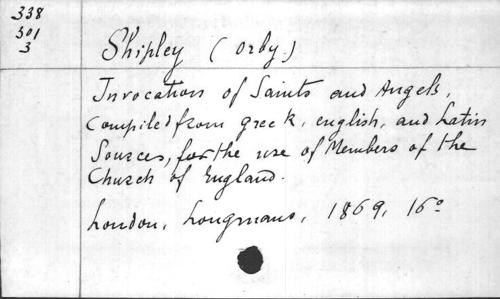 338
301
3
Shipley (Orby.)
Invocation of Saints and Angels,
Compiled from greek, english, and Latin
Sources, for the use of Members of the
Church of England.
London, Longmans, 1869, 16º